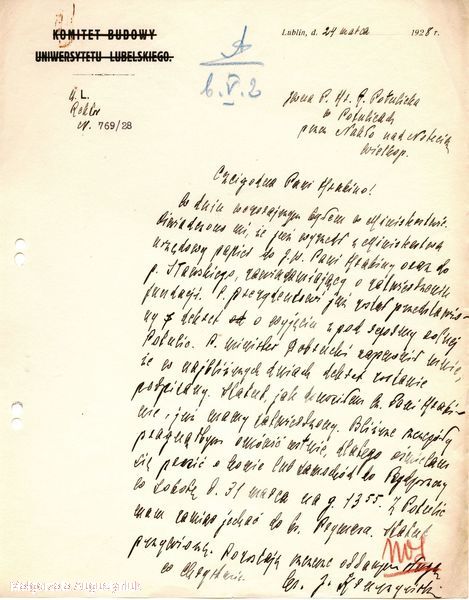 KOMITET BUDOWY
UNIWERSYTETU LUBELSKIEGO.
Lublin, d. 24 marca 1928 r.
A
b. V. 2
U. L.
Rektor
N. 769/28
Jaśna P. Hr. A. Potulicka
w Potulicach
przez Nakło nad Notecią
Wielkop.
Czcigodna Pani Hrabino!
W dniu wczorajszym byłem w Ministerstwie.
Oświadczono mi, że już wyszedł z Ministerstwa
urzędowy papier do J.W. Pani Hrabiny oraz do
p. Sławskiego, zawiadamiający o zatwierdzeniu
fundacji. P. prezydentowi już został przedstawio-
ny dekret o wyjęciu z pod reformy rolnej
Potulic. P. minister Dobrucki zapewnił mnie,
że w najbliższych dniach dekret zostanie
podpisany. Statut, jak donosiłem Cz. Pani Hrabi-
nie, już mamy zatwierdzony. Bliższe szczegóły
pragnąłbym omówić ustnie, dlatego ośmielam
się prosić o konie lub samochód do Bydgoszczy
w sobotę d. 31 marca na g. 13 55. Z Potulic
mam zamiar jechać do ks. Prymasa. Statut
przywiozę. Pozostaję szczerze oddanym sługą
w Chrystusie.
ks. J.